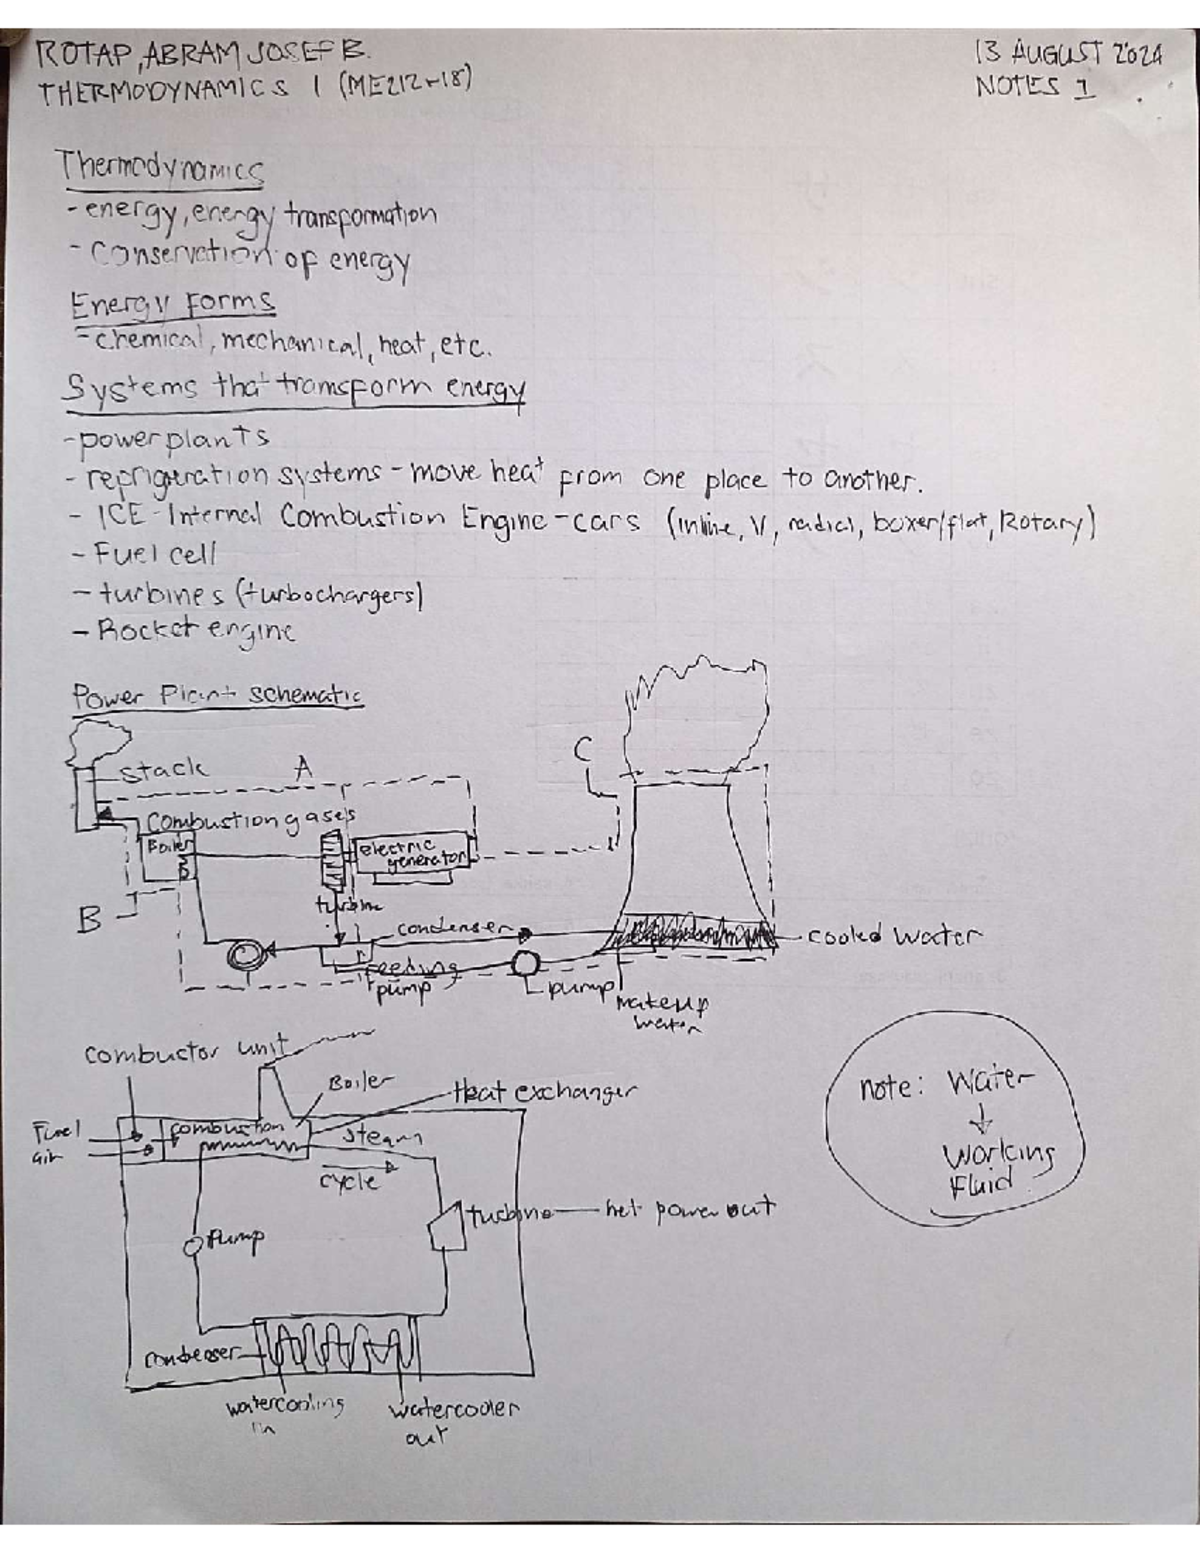 ROTAP, ABRAM JOSEF B.
13 AUGUST 2024
THERMODYNAMICS 1 (ME212-18)
NOTES 1
Thermodynamics
- energy, energy transformation
- Conservation of energy
Energy Forms
- chemical, mechanical, heat, etc.
Systems that transform energy
- power plants
- refrigeration systems - move heat from one place to another.
- ICE - Internal Combustion Engine - cars (inline, V, radial, boxer/flat, Rotary)
- Fuel cell
- turbines (turbochargers)
- Rocket engine
Power Plant schematic
C
stack
A
Combustion gases
Boiler
electric
generator
turbine
B
condenser
cooled water
feeding
pump
pump
makeup
water
combuctor unit
Boiler
Heat exchanger
note: Water
Fuel
air
combustion
steam
working
Fluid
cycle
turbine
net power out
Pump
condenser
watercooling
in
watercooler
out